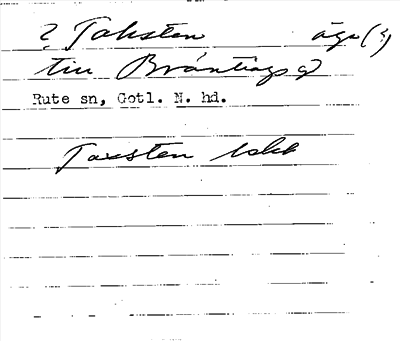 ? Taksten äga (?)
till Brántings
Rute sn, Gotl. N. hd.
Taksten